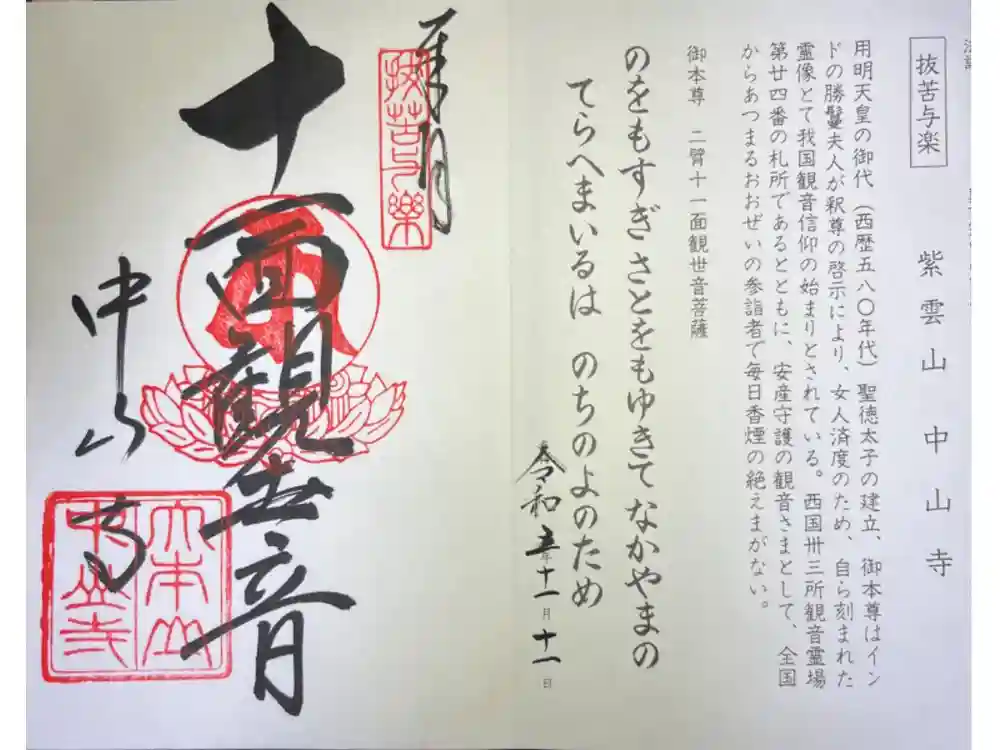 抜苦与楽
紫雲山中山寺
用明天皇の御代（西歴五八〇年代）聖徳太子の建立、御本尊はイン
ドの勝鬘夫人が釈尊の啓示により、女人済度のため、自ら刻まれた
霊像とて我国観音信仰の始まりとされている。西国卅三所観音霊場
第廿四番の札所であるとともに、安産守護の観音さまとして、全国
からあつまるおおぜいの参詣者で毎日香煙の絶えまがない。
御本尊 二臂十一面観世音菩薩
のをもすぎさとをもゆきてなかやまの
てらへまいるは のちのよのため
令和五年十一月十一日
奉拝
抜苦与樂
十一面観世音
中山寺
大本山
中山寺